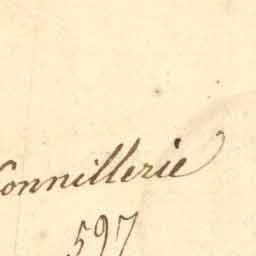 Connillerie
597